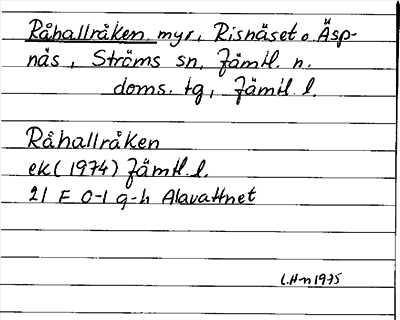 Råhallråken myr, Risnäset o. Äsp-
näs, Ströms sn, Jämtl. n.
doms. tg, Jämtl. l.
Råhallråken
ek (1974) Jämtl. l.
21 F 0-1 g-h Alavattnet
L.H-n 1975